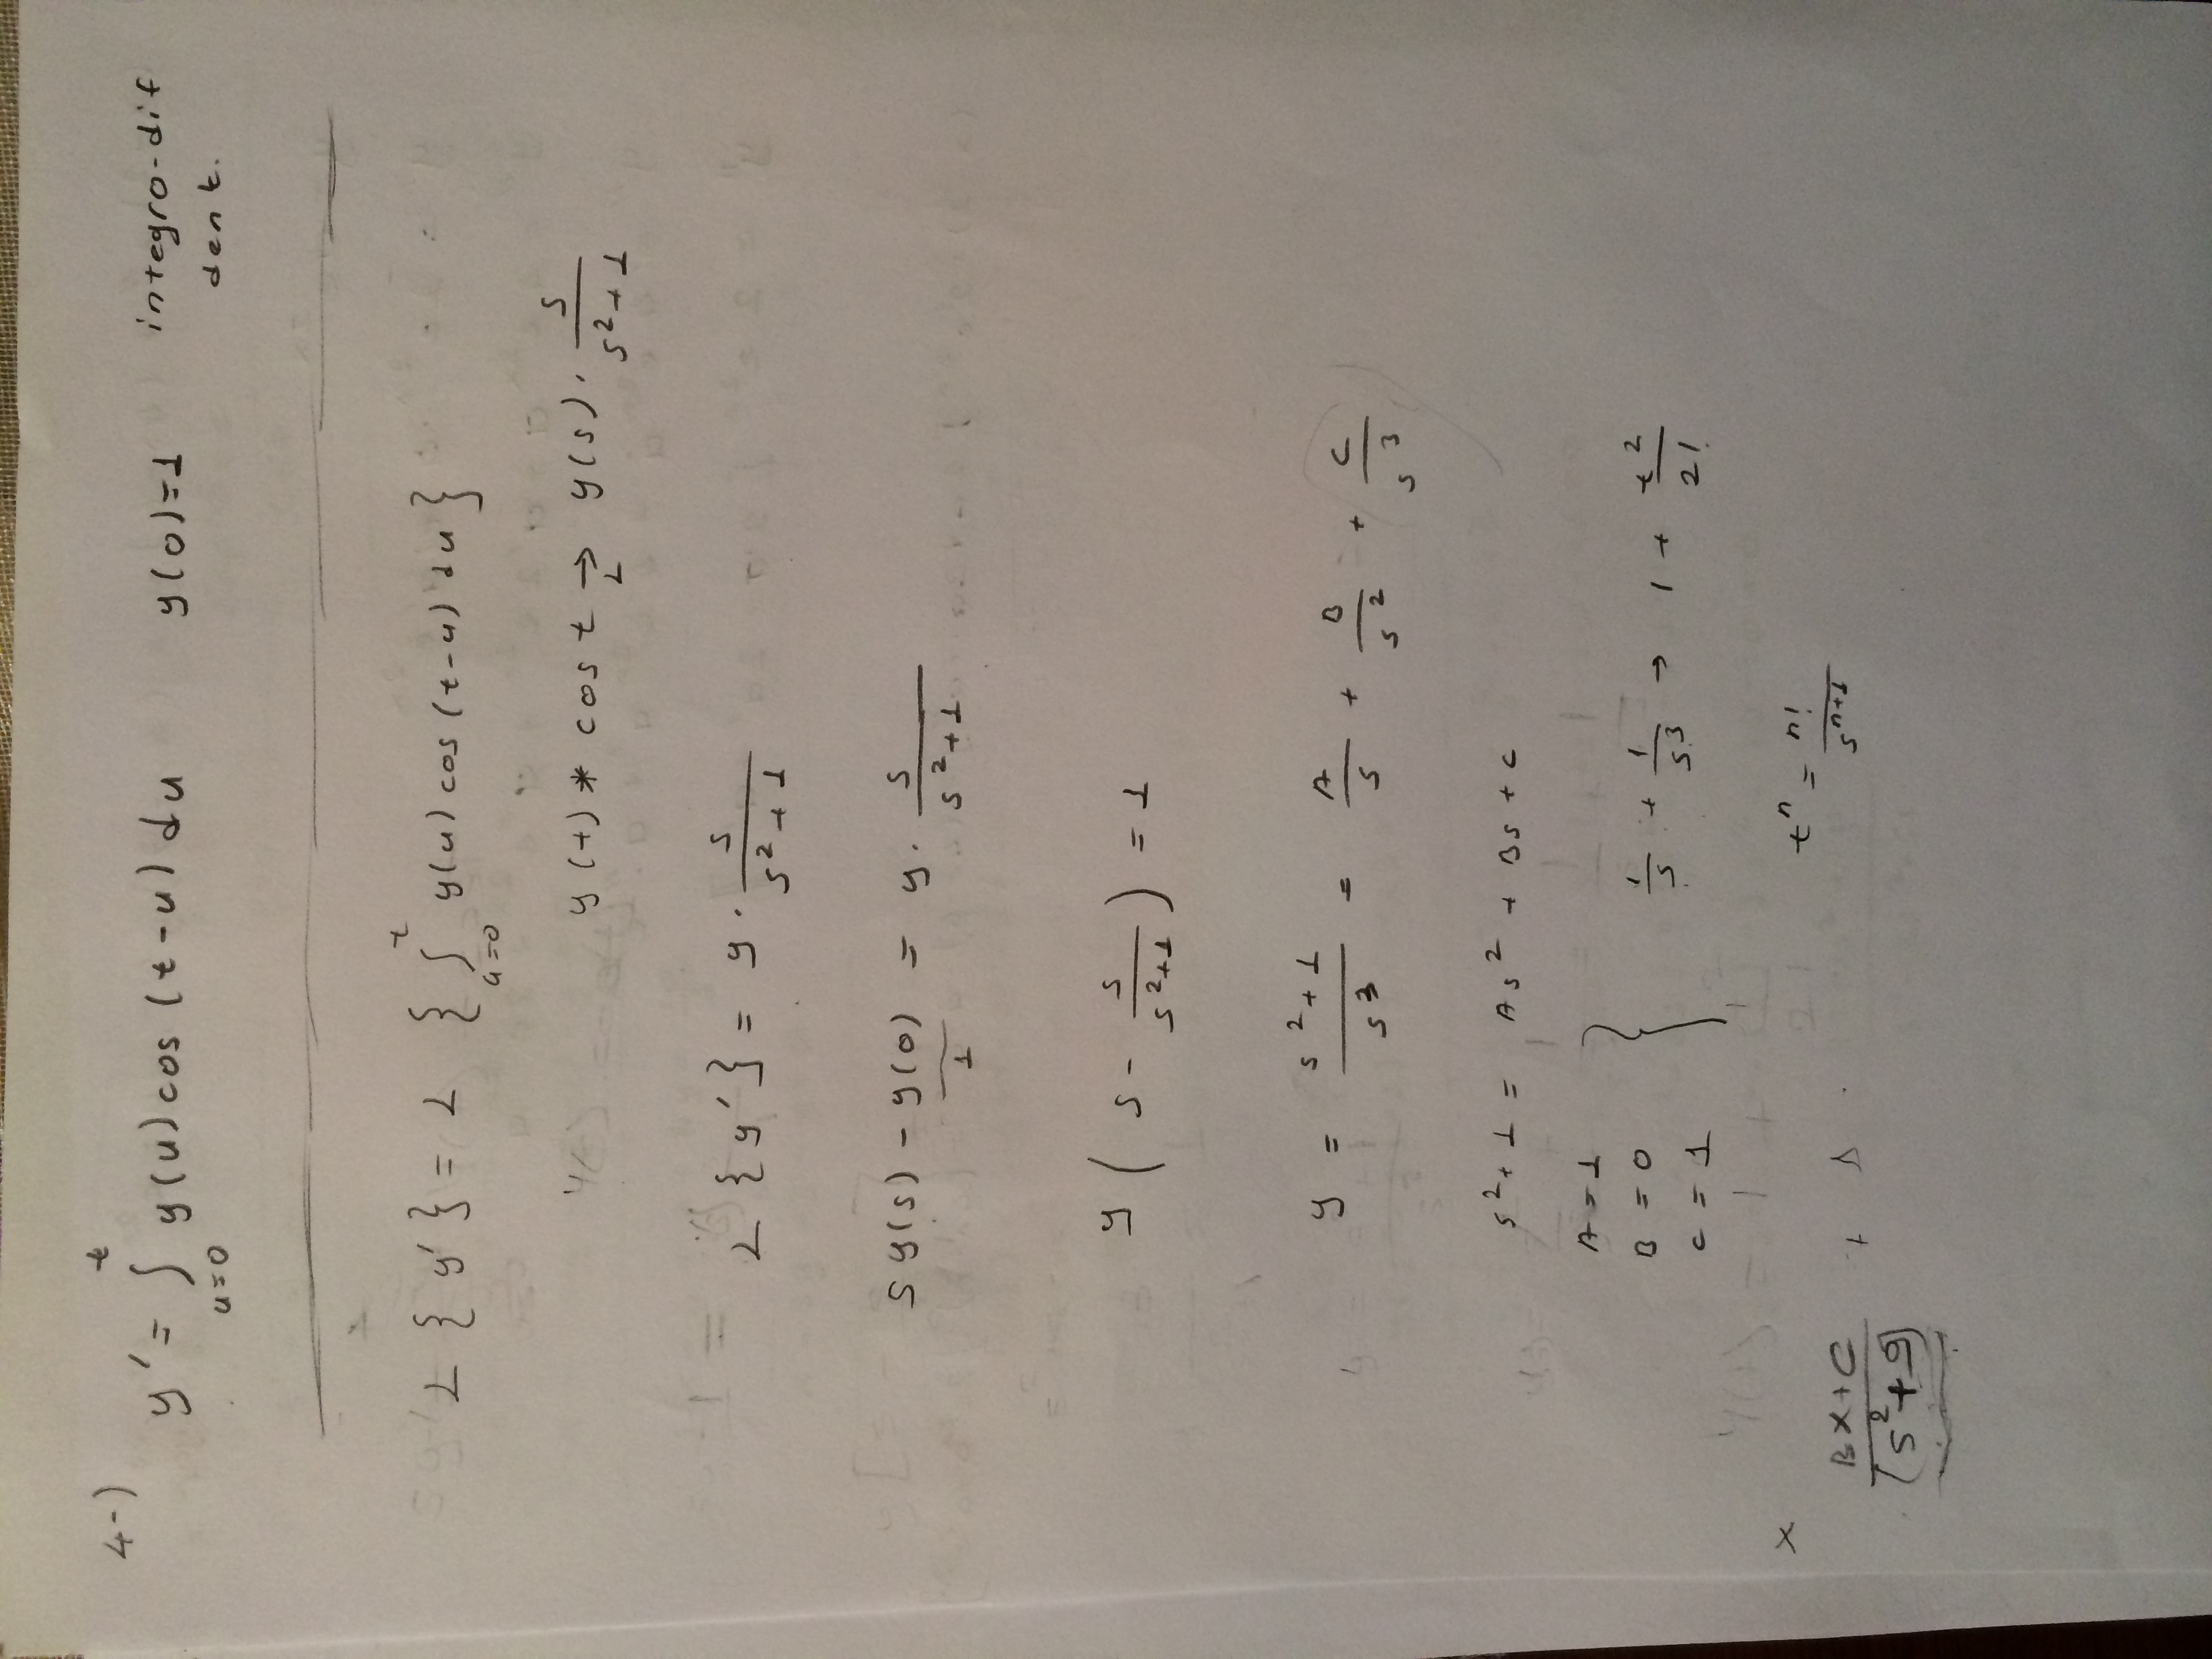 4-)
y' = ∫_{u=0}^{t} y(u) cos (t-u) du y(0)=1 integro-dif
denk.
L { y' } = L { ∫_{u=0}^{t} y(u) cos (t-u) du }
y(t) * cos t →_L y(s) . s/(s²+1)
L { y' } = y . s/(s²+1)
s y(s) - y(0) = y . s/(s²+1)
1
y ( s - s/(s²+1) ) = 1
y = (s²+1)/s³ = A/s + B/s² + C/s³
s²+1 = As² + Bs + C
A = 1
B = 0
C = 1
} 1/s + 1/s³ → 1 + t²/2!
x
tⁿ = n!/s^{n+1}
(Bx+C)/(s²+9) +